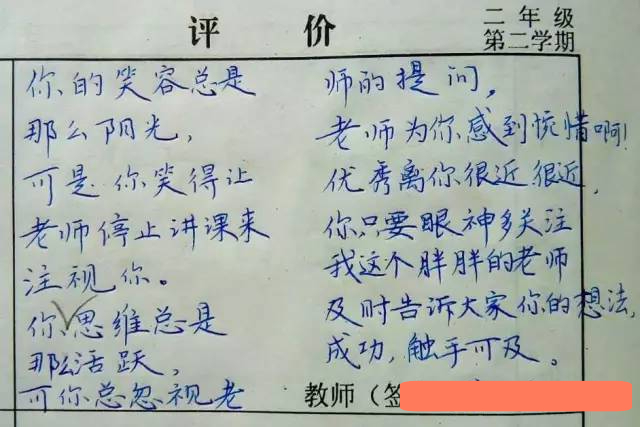 评 价
二年级
第二学期
你的笑容总是
那么阳光，
可是你笑得让
老师停止讲课来
注视你。
你思维总是
那么活跃，
可你总忽视老
师的提问，
老师为你感到惋惜啊！
优秀离你很近很近，
你只要眼神多关注
我这个胖胖的老师
及时告诉大家你的想法，
成功，触手可及。
教师（签